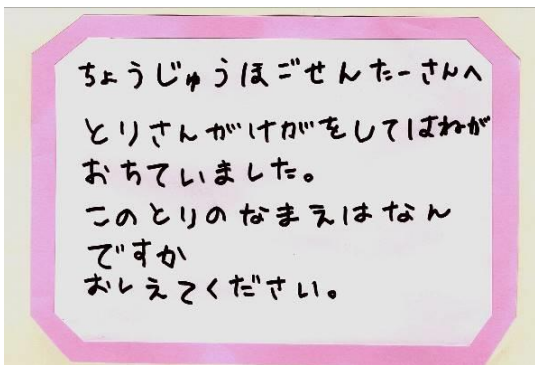 ちょうじゅうほごせんたーさんへ
とりさんがけがをしてはねが
おちていました。
このとりのなまえはなん
ですか
おしえてください。